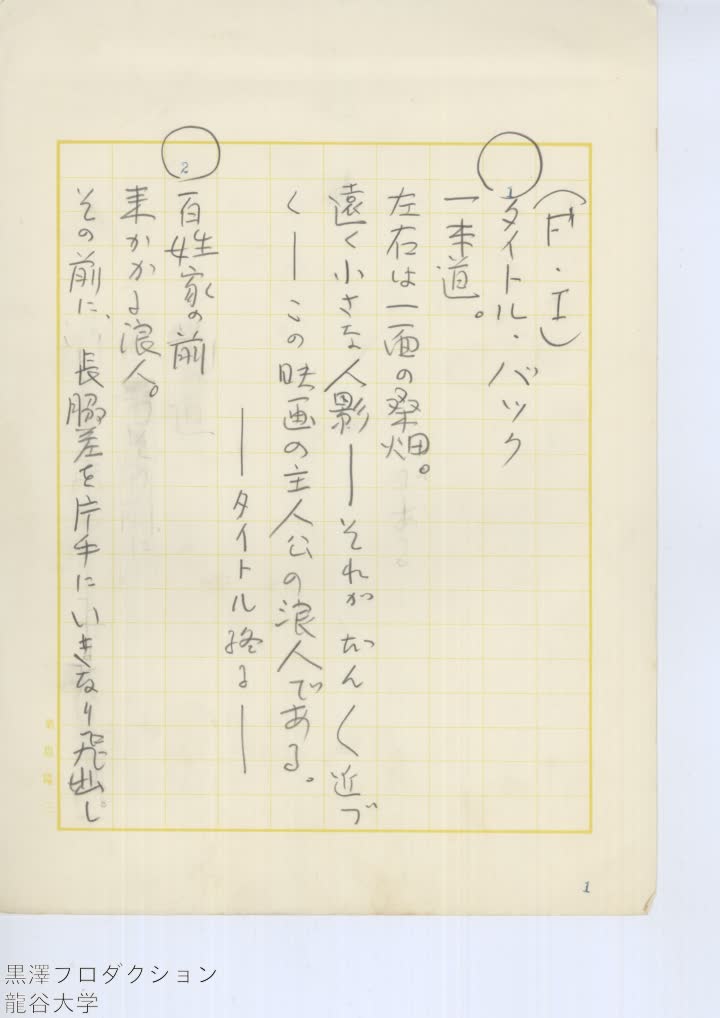 (F・I)
1
タイトル・バック
一本道。
左右は一面の桑畑。
遠く小さな人影――それがだん〱近づ
く――この映画の主人公の浪人である。
――タイトル終る――
2
百姓家の前
来かかる浪人。
その前に、長脇差を片手にいきなり飛出し
1
黒澤プロダクション
龍谷大学